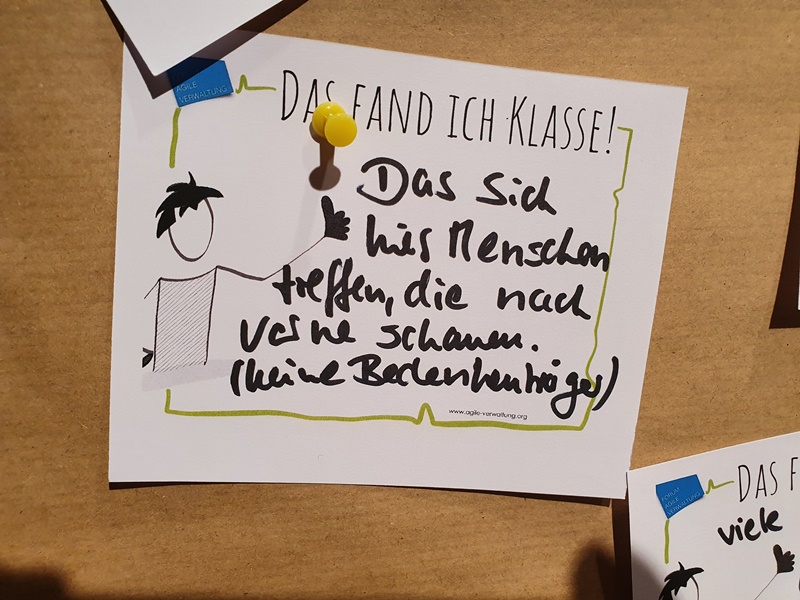 AGILE
VERWALTUNG
DAS FAND ICH KLASSE!
Das sich
hier Menschen
treffen, die nach
vorne schauen.
(keine Bedenkenträger)
www.agile-verwaltung.org
FORUM
AGILE
VERWALTUNG
DAS F
viele